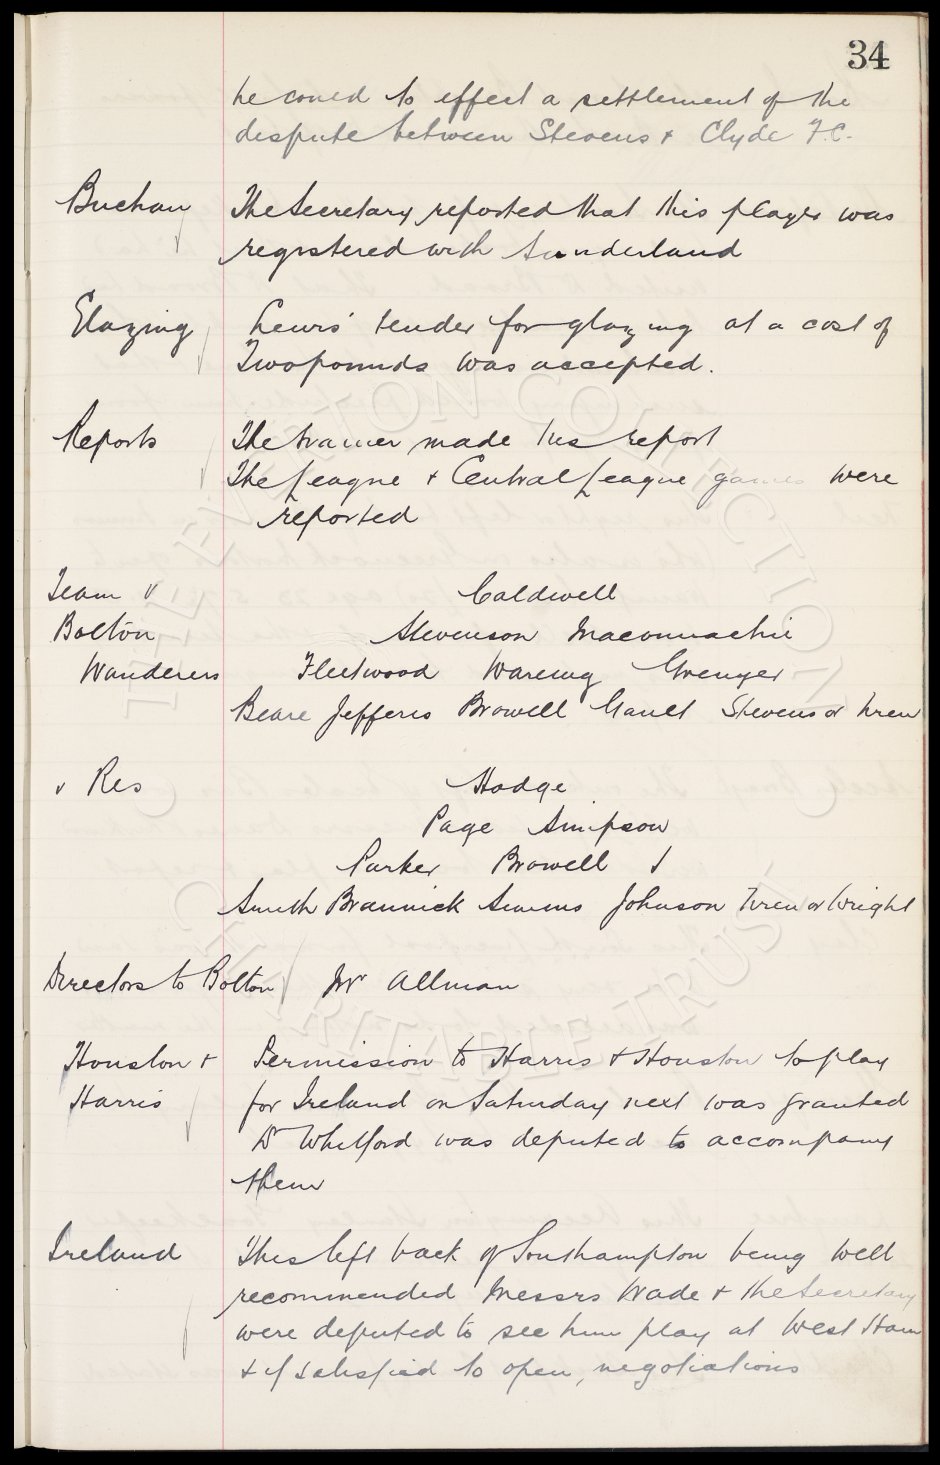 34
he could to effect a settlement of the
dispute between Stevens & Clyde F.C.
Buchan The Secretary reported that this player was
registered with Sunderland
Glazing Lewis' tender for glazing at a cost of
Two pounds was accepted.
Reports The trainer made his report
The League & Central League games were
reported
Team v Caldwell
Bolton Stevenson Maconnachie
Wanderers Fleetwood Wareing Grenyer
Beare Jefferis Browell Gault Stevens or Wren
v Res Hodge
Page Simpson
Parker Browell J
Smith Brannick Simms Johnson Wren or Wright
Directors to Bolton Mr Allman
Houston & Permission to Harris & Houston to play
Harris for Ireland on Saturday next was granted
Dr Whitford was deputed to accompany
them
Ireland This left back of Southampton being well
recommended Messrs Wade & the Secretary
were deputed to see him play at West Ham
& if satisfied to open negotiations
THE EVERTON COLLECTION
CHARITABLE TRUST